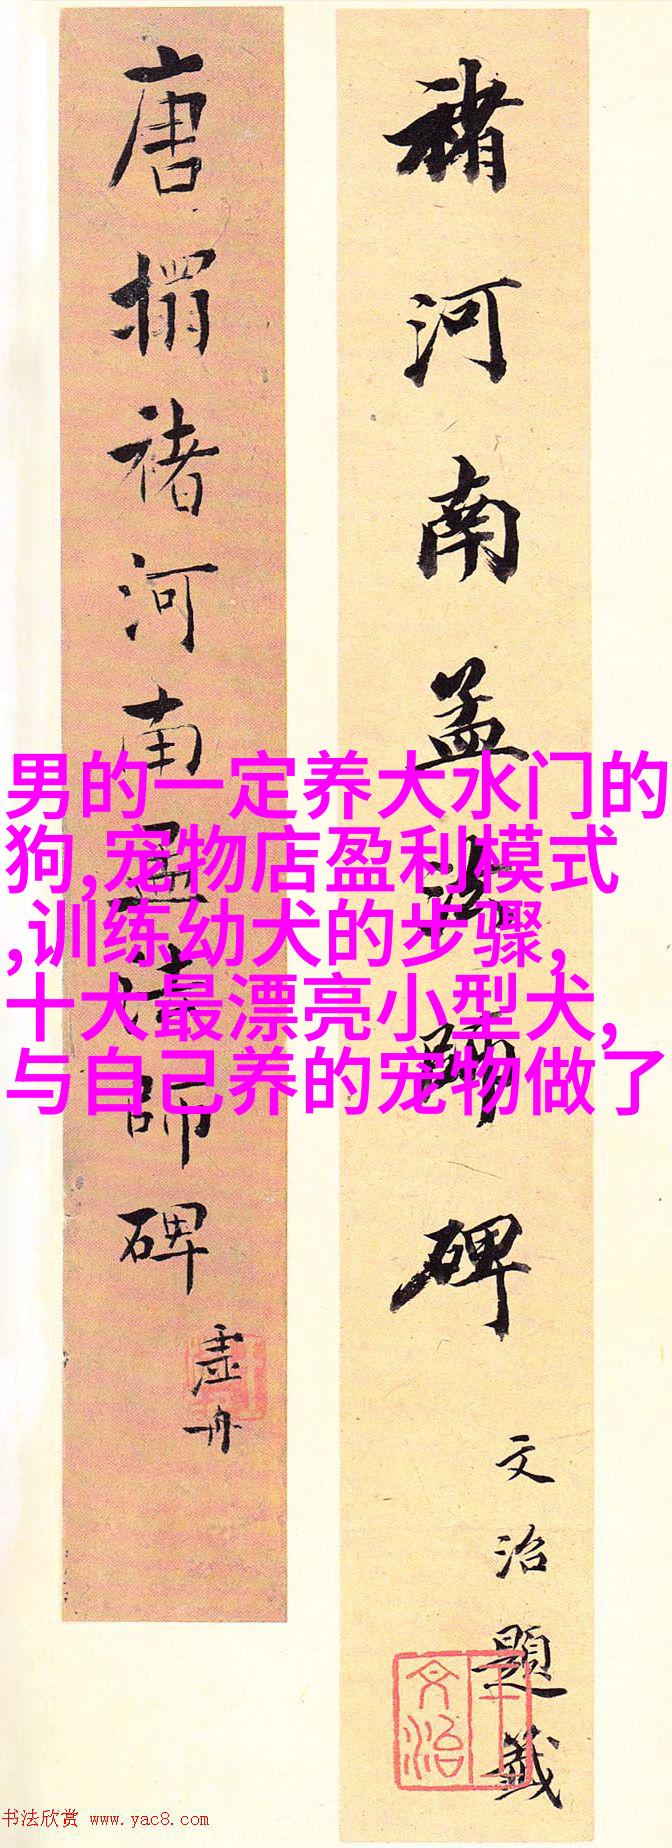 褚河南孟法師碑
文治題籤
王文治
唐搨褚河南孟法師碑
虛舟
男的一定养大水门的
狗,宠物店盈利模式
,训练幼犬的步骤,
十大最漂亮小型犬,
与自己养的宠物做了
书法欣赏 www.yac8.com